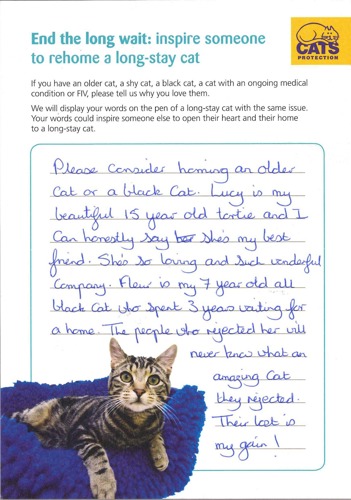 End the long wait: inspire someone
to rehome a long-stay cat
CATS
PROTECTION
If you have an older cat, a shy cat, a black cat, a cat with an ongoing medical
condition or FIV, please tell us why you love them.
We will display your words on the pen of a long-stay cat with the same issue.
Your words could inspire someone else to open their heart and their home
to a long-stay cat.
Please Consider homing an older
Cat or a black Cat. Lucy is my
beautiful 15 year old tortie and I
Can honestly say she's my best
friend. She's so loving and such wonderful
Company. Fleur is my 7 year old all
black Cat who spent 3 years waiting for
a home. The people who rejected her will
never know what an
amazing Cat
they rejected.
Their lost is
my gain!